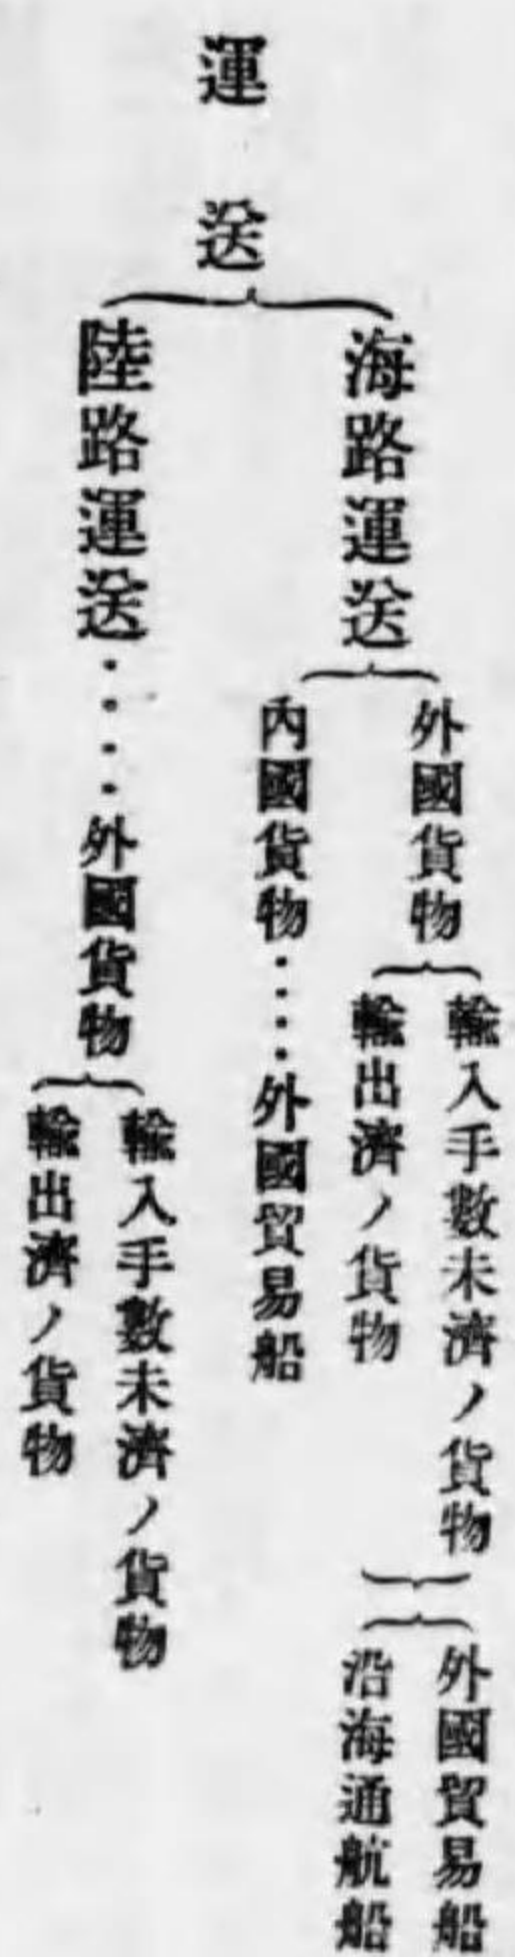 運送
海路運送
外國貨物
輸入手數未濟ノ貨物
輸出濟ノ貨物
外國貿易船
沿海通航船
內國貨物····外國貿易船
陸路運送····外國貨物
輸入手數未濟ノ貨物
輸出濟ノ貨物